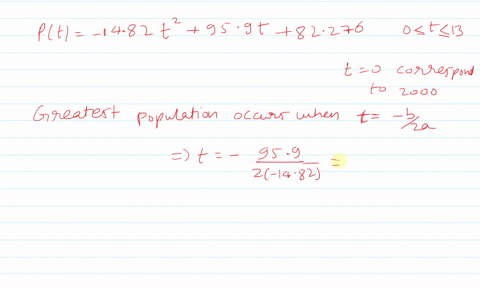 P(t) = -14.82 t² + 95.9t + 82.276 0≤t≤13
t=0 correspond
to 2000
Greatest population occurs when t = -b/2a
⇒ t = - 95.9/2(-14.82) =